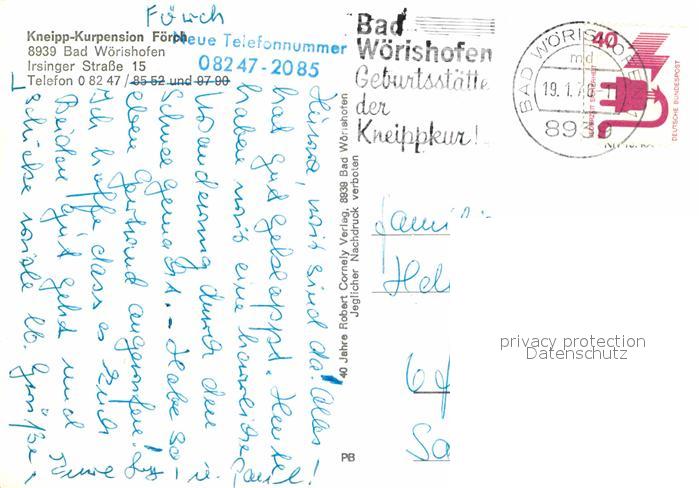 Förch
Kneipp-Kurpension Förch
8939 Bad Wörishofen
Irsinger Straße 15
Telefon 0 82 47 / 85 52 und 97 90
Neue Telefonnummer
08247-2085
Bad
Wörishofen
Geburtsstätte
der
Kneippkur!
BAD WÖRISHOFEN 1
md
19.1.76-1
8939
40
DEUTSCHE BUNDESPOST
40 Jahre Robert Cornely Verlag, 8939 Bad Wörishofen
Jeglicher Nachdruck verboten
Hurra, wir sind da! Alles
hat gut geklappt. Heute
haben wir eine herrliche
Wanderung durch den
Schnee gemacht. - Habe so-
eben angerufen!
Ich hoffe dass es Euch
Beiden gut geht und
schicke viele lb. Grüße,
Fami
Hel
Sa
PB
privacy protection
Datenschutz